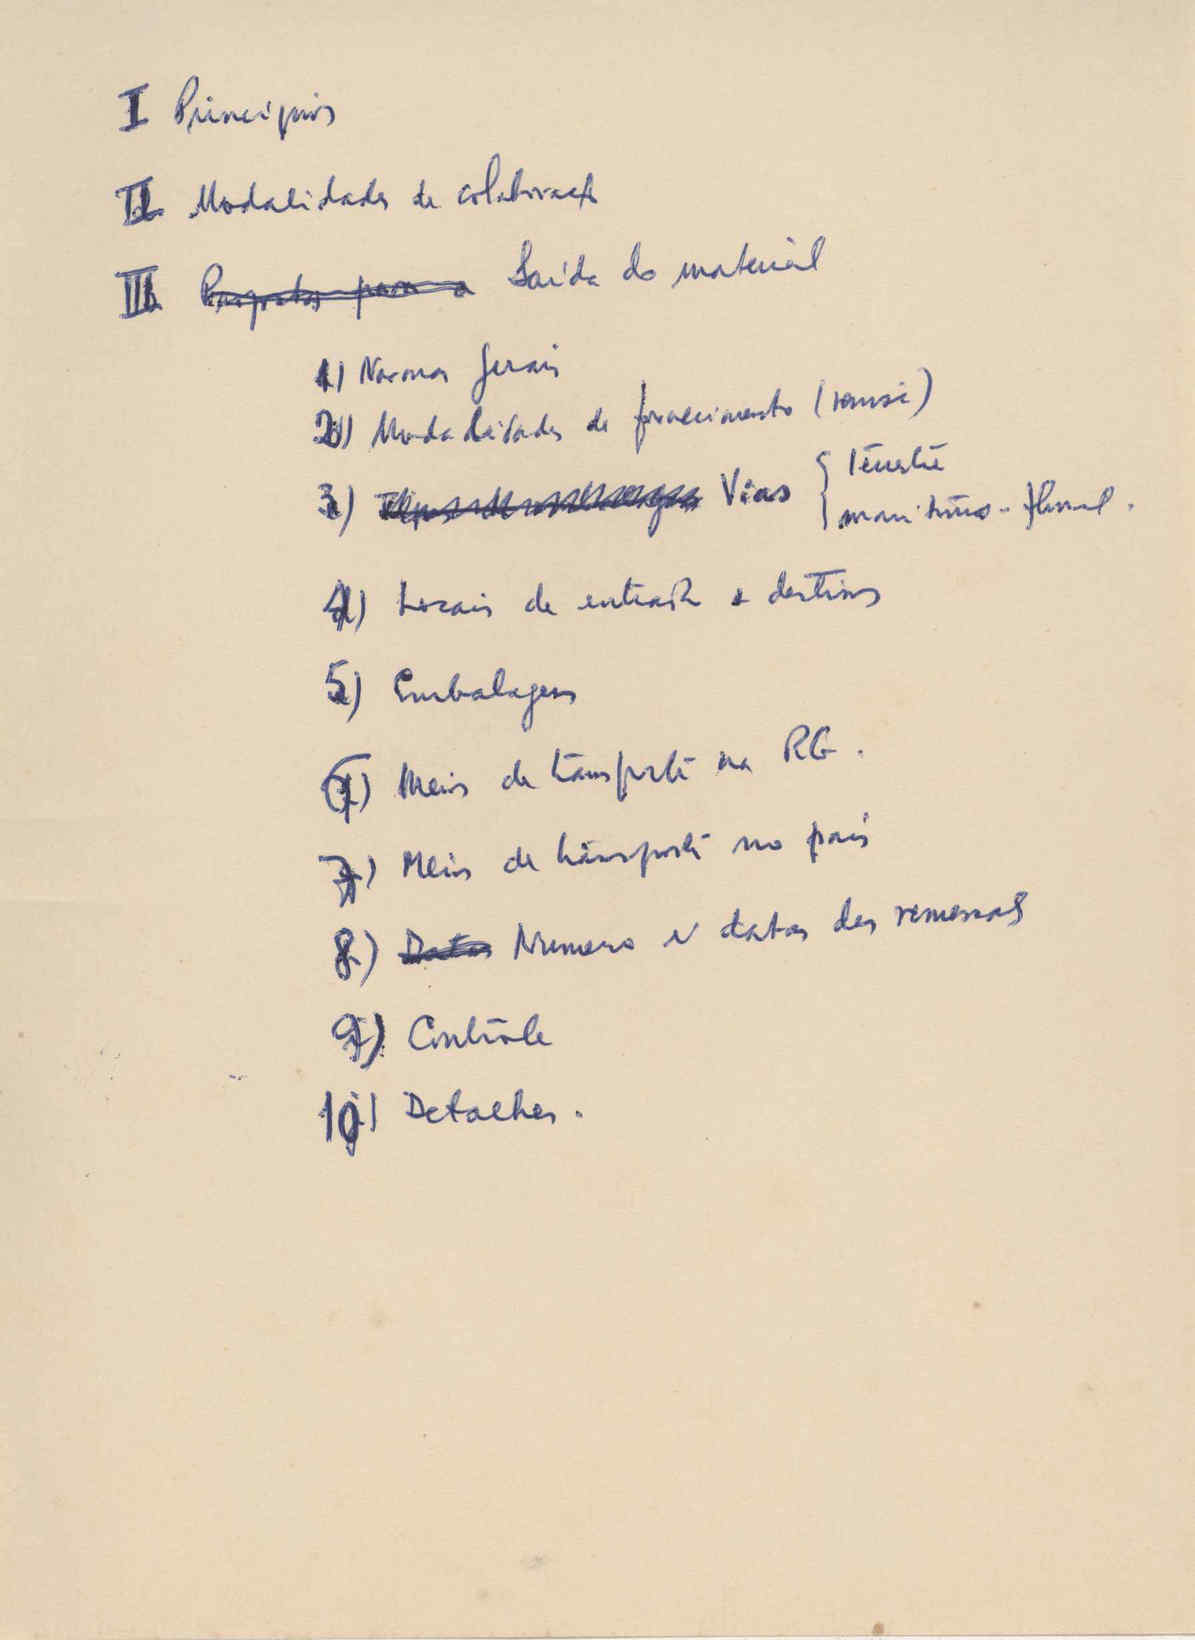 I Princípios
II Modalidades de colaboração
III Propostas para a Saída do material
1) Normas gerais
2) Modalidades de fornecimento (remise)
3) Vias { Terrestre
marítimo-fluvial.
4) Locais de entrada e destinos
5) Embalagem
6) Meios de transporte na RG.
7) Meios de transporte no país
8) Datas Numero e datas das remessas
9) Contrôle
10) Detalhes.